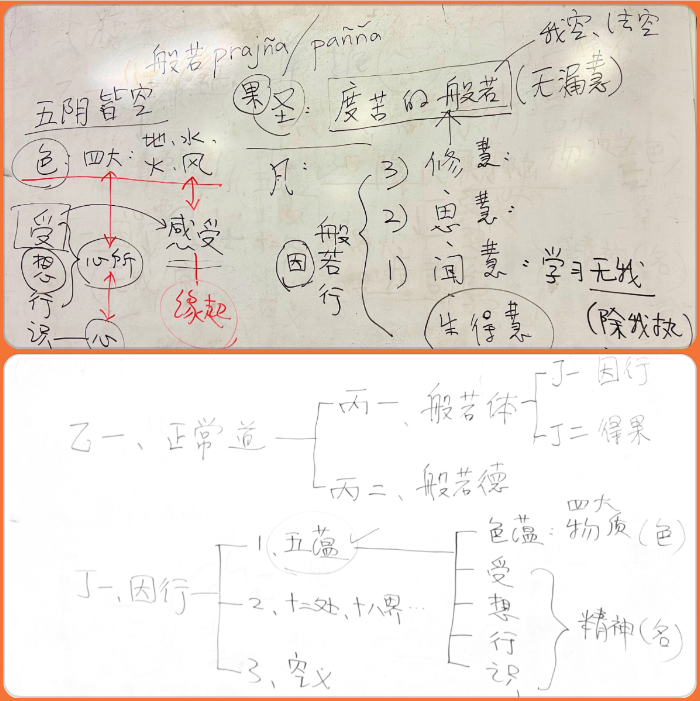 般若 prajña/pañña
我空、法空
五阴皆空
果 圣: 度苦的般若 (无漏慧)
色: 四大: 地、水、火、风
凡:
3) 修慧:
2) 思慧:
因 般若行
1) 闻慧: 学习无我
(除我执)
生得慧
受
想
行
识 — 心
心所
感受
缘起
乙一、正常道
丙一、般若体
丁一 因行
丁二 得果
丙二、般若德
丁一、因行
1、五蕴 ✓
色蕴: 四大 物质 (色)
受
想
行
识
精神(名)
2、十二处、十八界…
3、空义